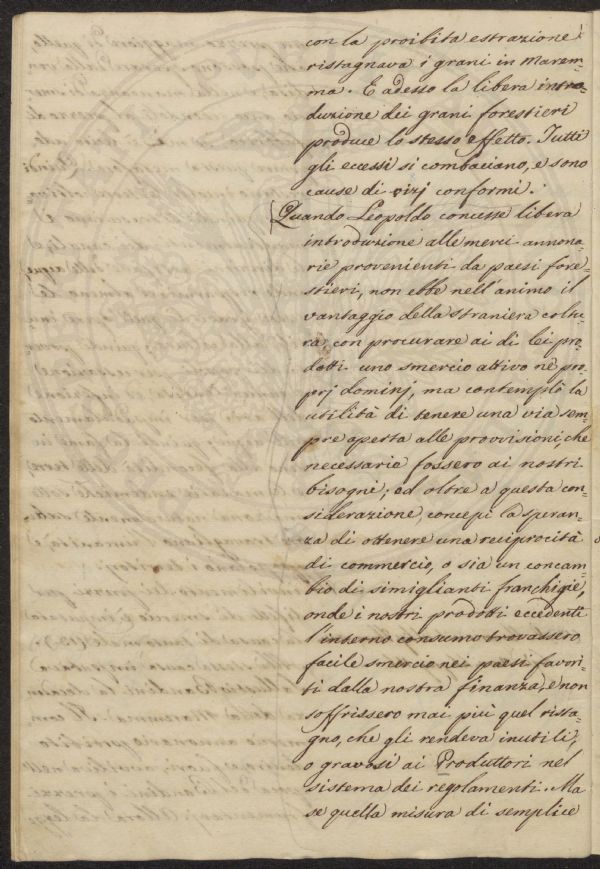 con la proibita estrazione
ristagnava i grani in Marem-
ma. E adesso la libera intro-
duzione dei grani forestieri
produce lo stesso effetto. Tutti
gli eccessi si combaciano, e sono
cause di vizj conformi.
Quando Leopoldo concesse libera
introduzione alle merci annona-
rie provenienti da paesi fore-
stieri, non ebbe nell'animo il
vantaggio della straniera coltu-
ra, con procurare ai di lei pro-
dotti uno smercio attivo ne' pro-
prj dominj, ma contemplò la
utilità di tenere una via sem-
pre aperta alle provvisioni, che
necessarie fossero ai nostri
bisogni; ed oltre a questa con-
siderazione, concepì la speran-
za di ottenere una reciprocità
di commercio, o sia un concam-
bio di simiglianti franchigie,
onde i nostri prodotti eccedenti
l'interno consumo trovassero
facile smercio nei paesi favori-
ti dalla nostra finanza, e non
soffrissero mai più quel rista-
gno, che gli rendeva inutili,
o gravosi ai Produttori nel
sistema dei regolamenti. Ma
se quella misura di semplice